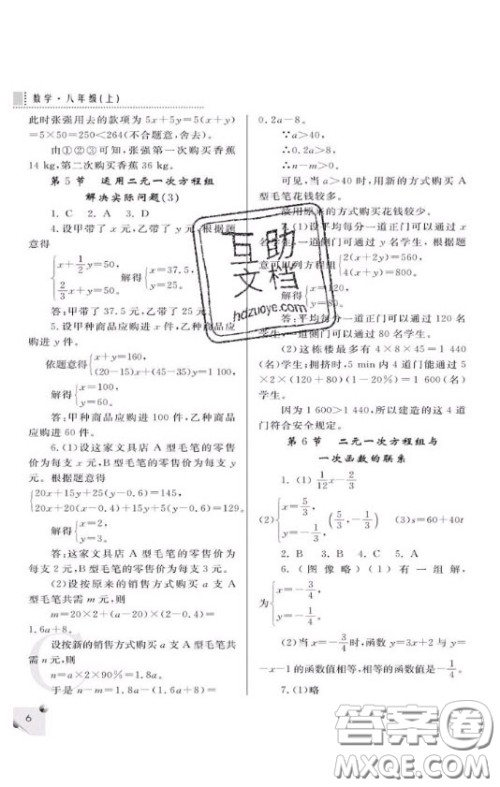 数学·八年级(上)
此时张强用去的款项为 5x+5y=5(x+y)
=5×50=250<264(不合题意,舍去).
由①②③可知,张强第一次购买香蕉
14 kg,第二次购买香蕉 36 kg.
第5节 运用二元一次方程组
解决实际问题(3)
1. C 2. A 3. D
4.设甲带了 x 元,乙带了 y 元,根据题
意得
{x+1/2y=50, 2/3x+y=50, 解得{x=37.5, y=25.
答:甲带了 37.5 元,乙带了 25 元.
5.设甲种商品应购进 x 件,乙种商品
应购进 y 件.
依题意得{x+y=160, (20-15)x+(45-35)y=1 100,
解得{x=100, y=60.
答:甲种商品应购进 100 件,乙种商品
应购进 60 件.
6.(1)设这家文具店 A 型毛笔的零售
价为每支 x 元,B 型毛笔的零售价为每支 y
元.根据题意得
{20x+15y+25(y-0.6)=145, 20x+20(x-0.4)+15y+5(y-0.6)=129.
解得{x=2, y=3.
答:这家文具店 A 型毛笔的零售价为
每支 2 元,B 型毛笔的零售价为每支 3 元.
(2)设按原来的销售方式购买 a 支 A
型毛笔共需 m 元,则
m=20×2+(a-20)×(2-0.4)=
1.6a+8.
设按新的销售方式购买 a 支 A 型毛笔共
需 n 元,则
n=a×2×90%=1.8a.
于是 n-m=1.8a-(1.6a+8)=
0.2a-8.
∵a>40,
∴0.2a>8.
∴n-m>0.
可见,当 a>40 时,用新的方式购买 A
型毛笔花钱较多.
用原来的方式购买花钱较少.
(1)设平均每分一道正门可以通过 x
名学生,一道侧门可以通过 y 名学生.根据题
意可以列方程组
2(x+2y)=560,
4(x+y)=800.
解得{x=120, y=80.
答:平均每分一道正门可以通过 120 名
学生,一道侧门可以通过 80 名学生.
(2)这栋楼最多有 4×8×45=1 440
(名)学生;拥挤时,5 min 内 4 道门能通过 5
×2×(120+80)(1-20%)=1 600(名)
学生.
因为 1 600>1 440,所以建造的这 4 道
门符合安全规定.
第6节 二元一次方程组与
一次函数的联系
1. (1) 1/12x-2/3
(2){x=5/3, y=-1/3 (5/3,-1/3) (3)s=60+40t
2. B 3. B 4. C 5. A
6.(图像略)(1)有一组解,
为{x=-3/4, y=-1/4.
(2)当 x=-3/4 时,函数 y=3x+2 与 y
=x-1/2 的函数值相等,相等的函数值是-1/4.
7.(1)略
6
互助
文档
hdzuoye.com
答案圈
MXQE.COM